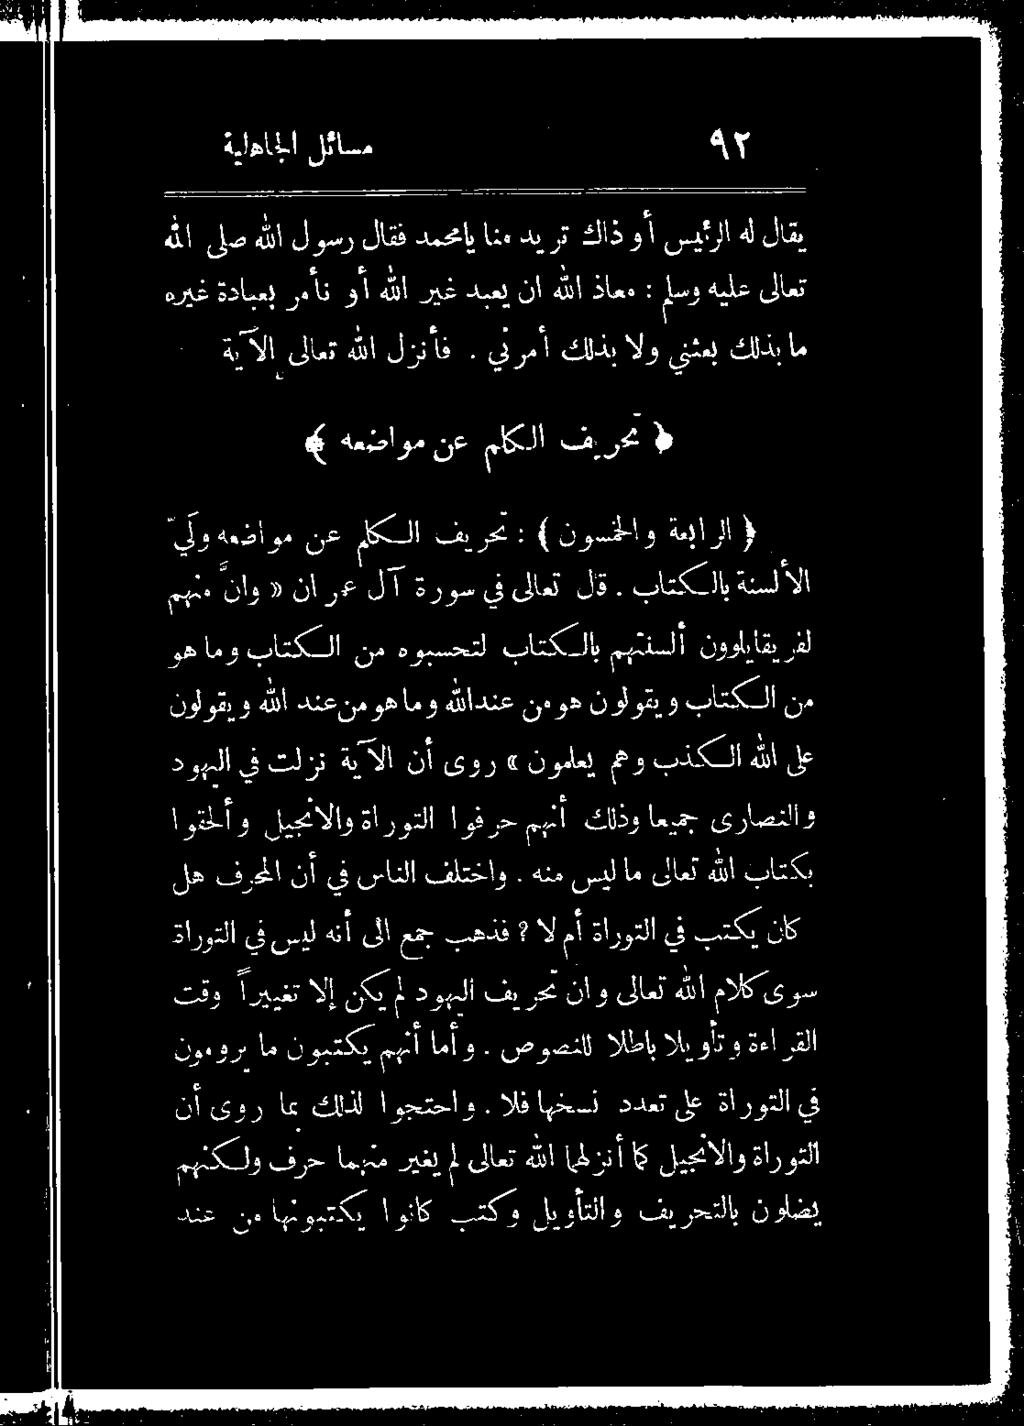 ٩٢ مسائل الجاهلية
يقال له الرئيس أو ذاك تريد منا يامحمد فقال رسول الله صلى الله
تعالى عليه وسلم : معاذ الله ان يعبد غير الله أو نأمر بعبادة غيره
ما بذلك بعثني ولا بذلك أمرني . فأنزل الله تعالى الآية
﴿ تحريف الكلم عن مواضعه ﴾
﴿ الرابعة والخمسون ﴾ : تحريف الكلم عن مواضعه وليّ
الألسنة بالكتاب . قل تعالى في سورة آل عمران « وانَّ منهم
لفريقايلوون ألسنتهم بالكتاب لتحسبوه من الكتاب وما هو
من الكتاب ويقولون هو من عندالله وما هو من عند الله ويقولون
على الله الكذب وهم يعلمون » روى أن الآية نزلت في اليهود
والنصارى جميعا وذلك أنهم حرفوا التوراة والانجيل وألحقوا
بكتاب الله تعالى ما ليس منه . واختلف الناس في أن المحرف هل
كان يكتب في التوراة أم لا ? فذهب جمع الى أنه ليس في التوراة
سوى كلام الله تعالى وان تحريف اليهود لم يكن إلا تغييراً وقت
القراءة وتأويلا باطلا للنصوص . وأما أنهم يكتبون ما يرومون
في التوراة على تعدد نسخها فلا . واحتجوا لذلك بما روى أن
التوراة والانجيل كما أنزلهما الله تعالى لم يغير منهما حرف ولكنهم
يضلون بالتحريف والتأويل وكتب كانوا يكتبونها من عند